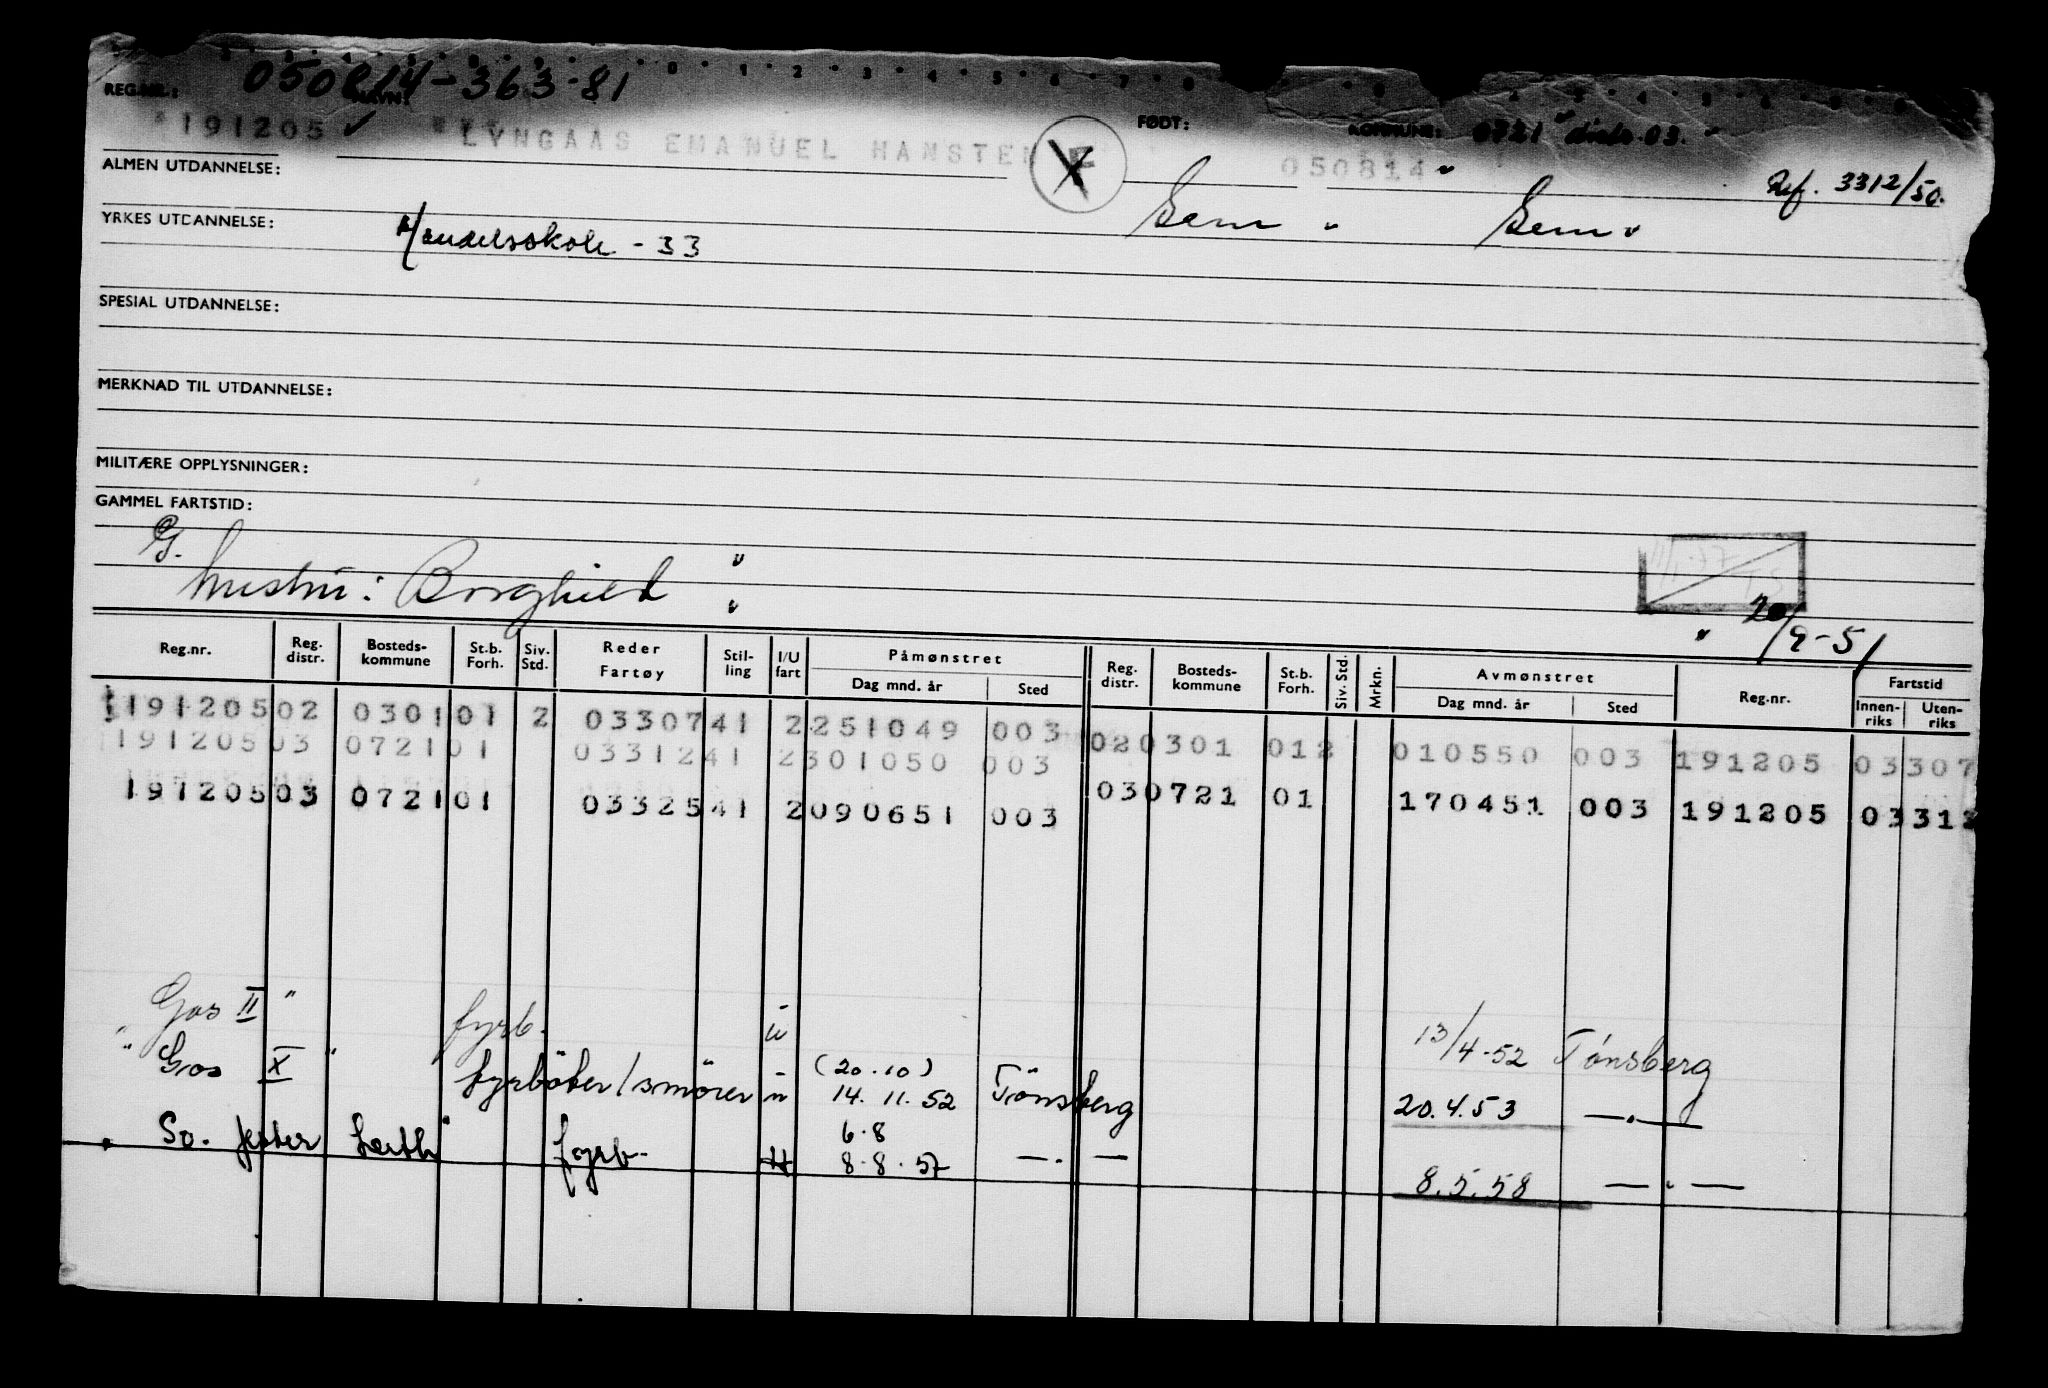 050814-363-81
REG.NR.: NAVN: FØDT: KOMMUNE: 0721 distr. 03.
191205 LYNGAAS EMANUEL HANSTEN F 050814
ALMEN UTDANNELSE: Ref. 3312/50.
Sem Sem
YRKES UTDANNELSE: Handelsskole - 33
SPESIAL UTDANNELSE:
MERKNAD TIL UTDANNELSE:
MILITÆRE OPPLYSNINGER:
GAMMEL FARTSTID:
G.
hustru: Borghild "
20/9-51
Reg.nr. Reg. distr. Bosteds-kommune St.b. Forh. Siv. Std. Reder Fartøy Stil-ling I/U fart Påmønstret Dag mnd. år Sted Reg. distr. Bosteds-kommune St.b. Forh. Siv. Std. Mrkn. Avmønstret Dag mnd. år Sted Reg.nr. Fartstid Innen-riks Uten-riks
191205 02 0301 01 2 03307 41 2 251049 003 02 0301 01 2 010550 003 191205 03 307
191205 03 0721 01 03312 41 2 301050 003 03 0721 01 170451 003 191205 03 312
191205 03 0721 01 03325 41 2 090651 003
Gos II " fyrb. u 13/4-52 Tønsberg
" Gos X " fyrbøter/smører u (20.10) 14.11.52 Tønsberg 20.4.53 —"—
So. fyrb. 6.8 8.8.57 —"— 8.5.58 —"—